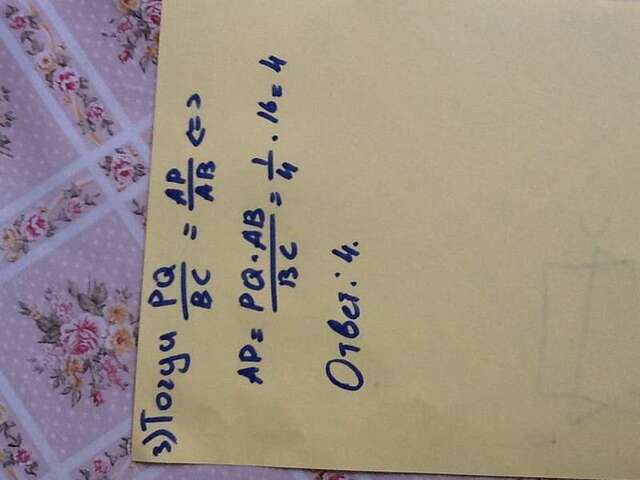 3) Тогда и PQ/BC = AP/AB <=>
AP = PQ·AB/BC = 1/4 · 16 = 4
Ответ: 4.